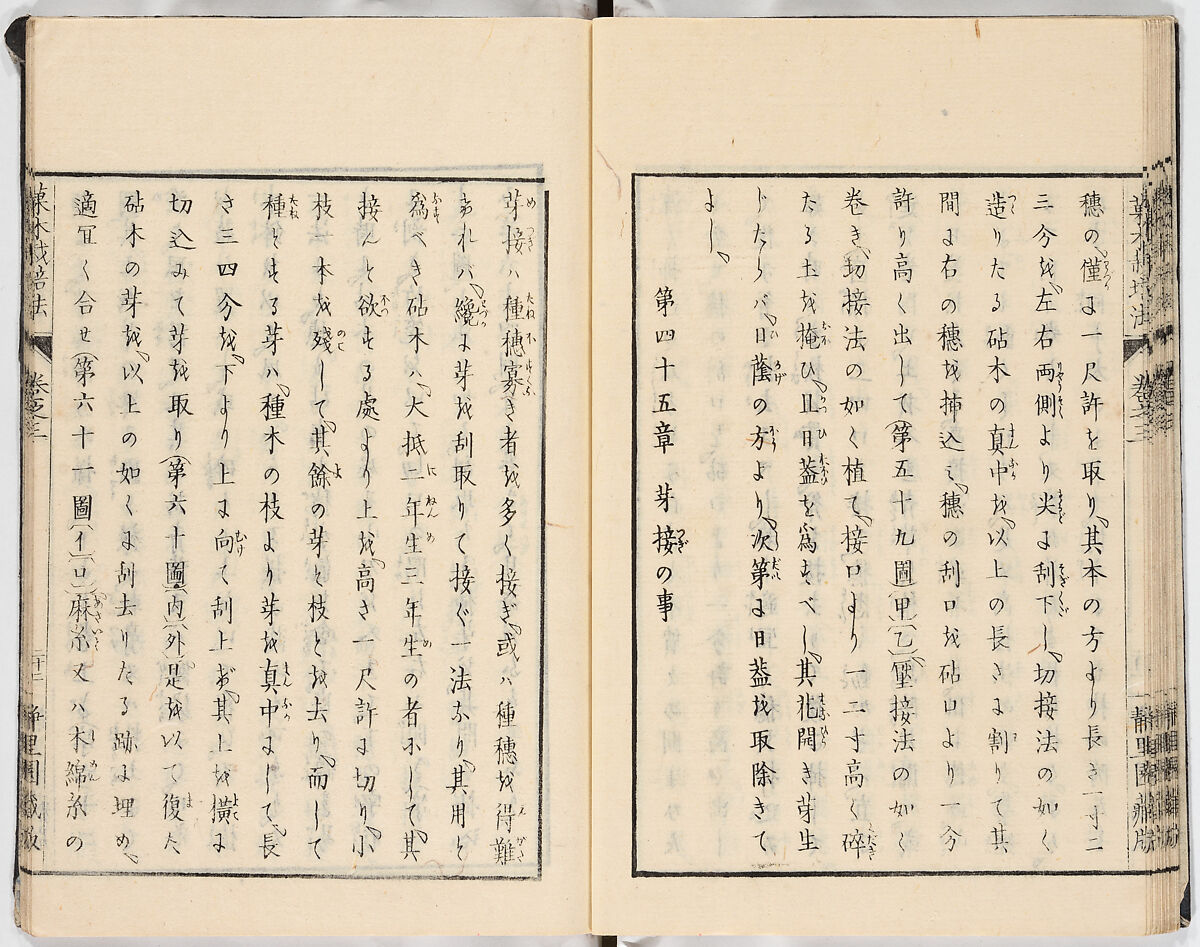 穗の僅に一尺許を取り、其本の方より長さ一寸二
三分を、左右両側より尖に刮下し、切接法の如く
造りたる砧木の真中を、以上の長さに割りて其
間に右の穗を挿込み、穗の刮口を砧口より一分
許り高く出して(第五十九圖(甲)(乙)壓接法の如く
卷き、切接法の如く植て、接口より一二寸高く碎
たる土を掩ひ、且日葢を為すべし、其花開き芽生
じたらバ、日蔭の方より、次第に日葢を取除きて
よし、
第四十五章 芽接の事
芽接ハ、種穗寡き者を多く接ぎ、或ハ種穗を得難
あれバ、纔に芽を刮取りて接ぐ一法なり、其用と
為べき砧木ハ、大抵二年生三年生の者にして、其
接んと欲する處より上を、高さ一尺許に切り、小
枝一本を殘して、其餘の芽と枝とを去り、而して
種とする芽ハ、種木の枝より芽を真中にして、長
さ三四分を、下より上に向て刮上げ、其上を横に
切込みて芽を取り(第六十圖(内)(外)是を以て復た
砧木の芽を、以上の如く刮去りたる跡に埋め、
適冝く合せ(第六十一圖(イ)(ロ)麻糸又ハ木綿糸の
菓木栽培法 卷之二 二十二 静里園藏版